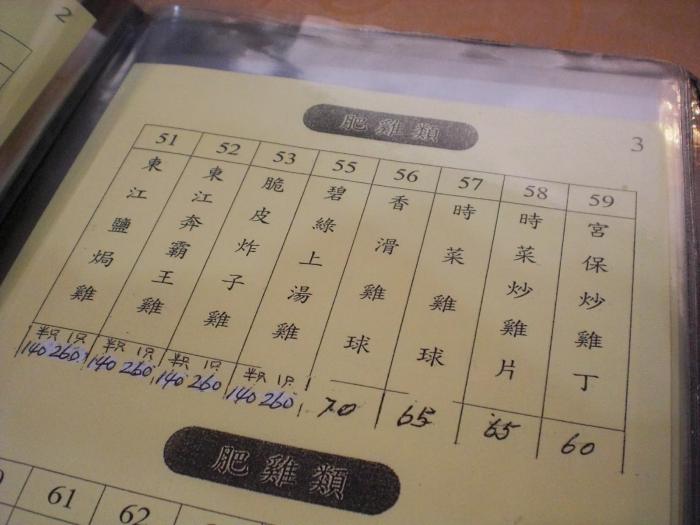 2
肥雞類
3
51 52 53 55 56 57 58 59
東江鹽焗雞
東江奔霸王雞
脆皮炸子雞
碧綠上湯雞
香滑雞球
時菜雞球
時菜炒雞片
宮保炒雞丁
半只 只 半只 只 半只 只 半只 只
140 260 140 260 140 260 140 260 70 65 65 60
肥雞類
61 62